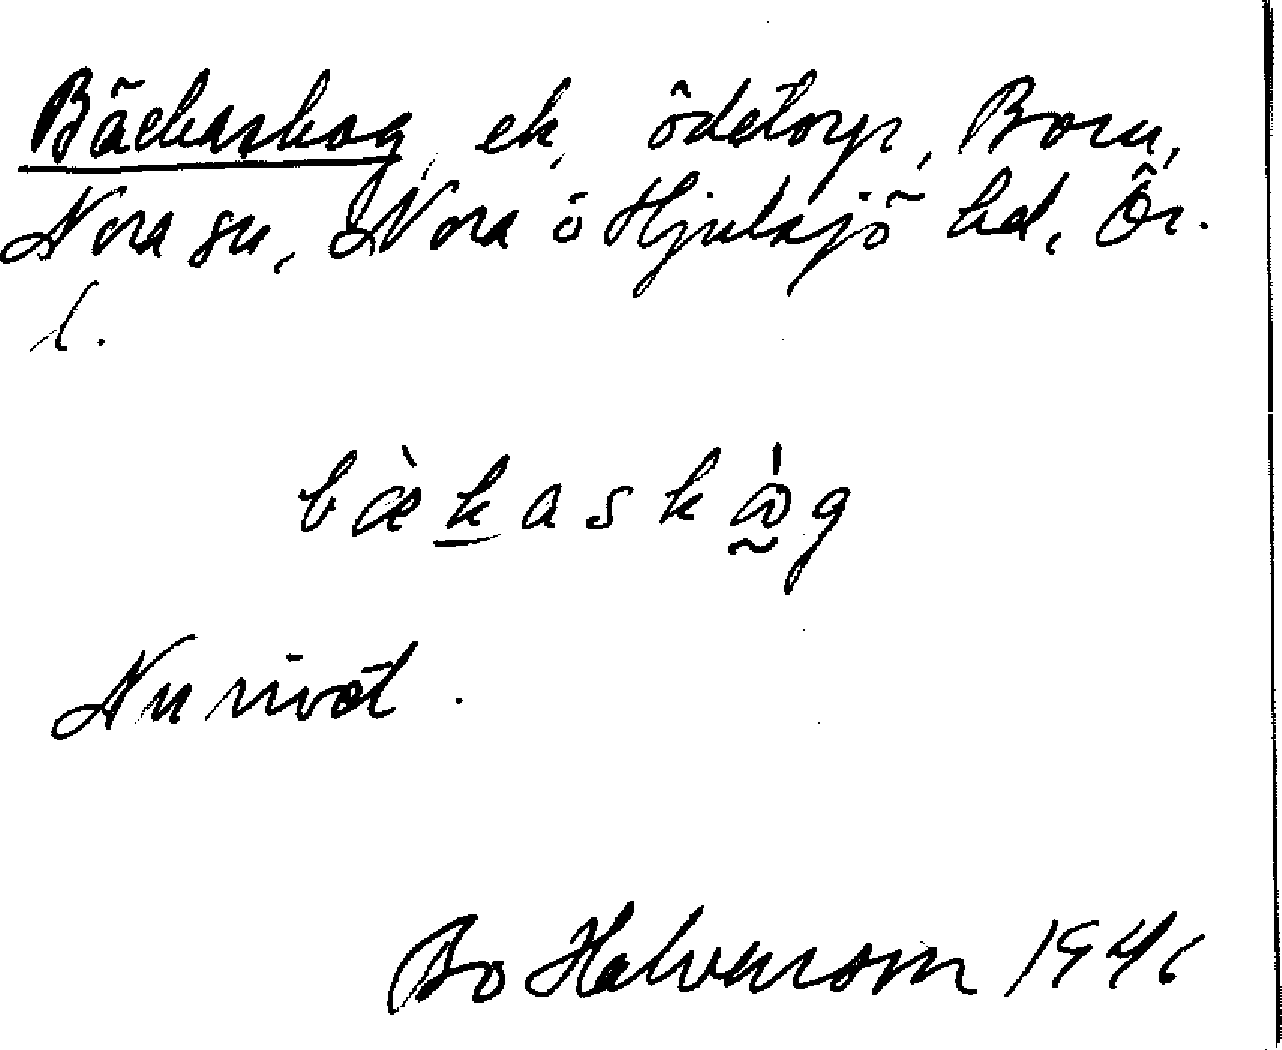 Bäckaskog, ek, ödetorp, Bora,
Nora sn, Nora o Hjulsjö hd, Ör.
l.
bæ̀kaskɑ̀g
Nu rivet.
Bo Halvarson 194